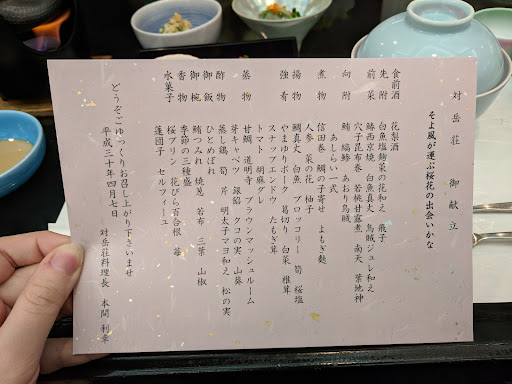 対岳荘 御献立
そよ風が運ぶ桜花の出会いかな
食前酒 花梨酒
先附 白魚塩麹菜の花和え 飛子
前菜 鰆西京焼 白魚真丈 烏賊ジュレ和え
穴子昆布巻 若桃甘露煮 南天 葉地神
向附 鮪 縞鰺 あおり烏賊
あしらい一式
煮物 信田巻 鯛の子寄せ よもぎ麩
人参 菜の花 柚子
揚物 鯛真丈 白魚 ブロッコリー 筍 桜塩
強肴 やまゆりポーク 葛切り 白菜 椎茸
スナップエンドウ たもぎ茸
トマト 胡麻ダレ
蒸物 甘鯛 道明寺 ブラウンマッシュルーム
芽キャベツ 銀餡 クコの実 山葵
酢物 蒸し鶏 筍 芹 明太子マヨ和え 松の実
御飯 ひとめぼれ
御椀 鮪つみれ 焼葱 若布 三葉 山椒
香物 季節の三種盛
水菓子 桜プリン 花びら百合根 苺
蓮団子 セルフィーユ
どうぞごゆっくりお召し上がり下さいませ
平成三十年四月七日
対岳荘料理長 本間 利幸